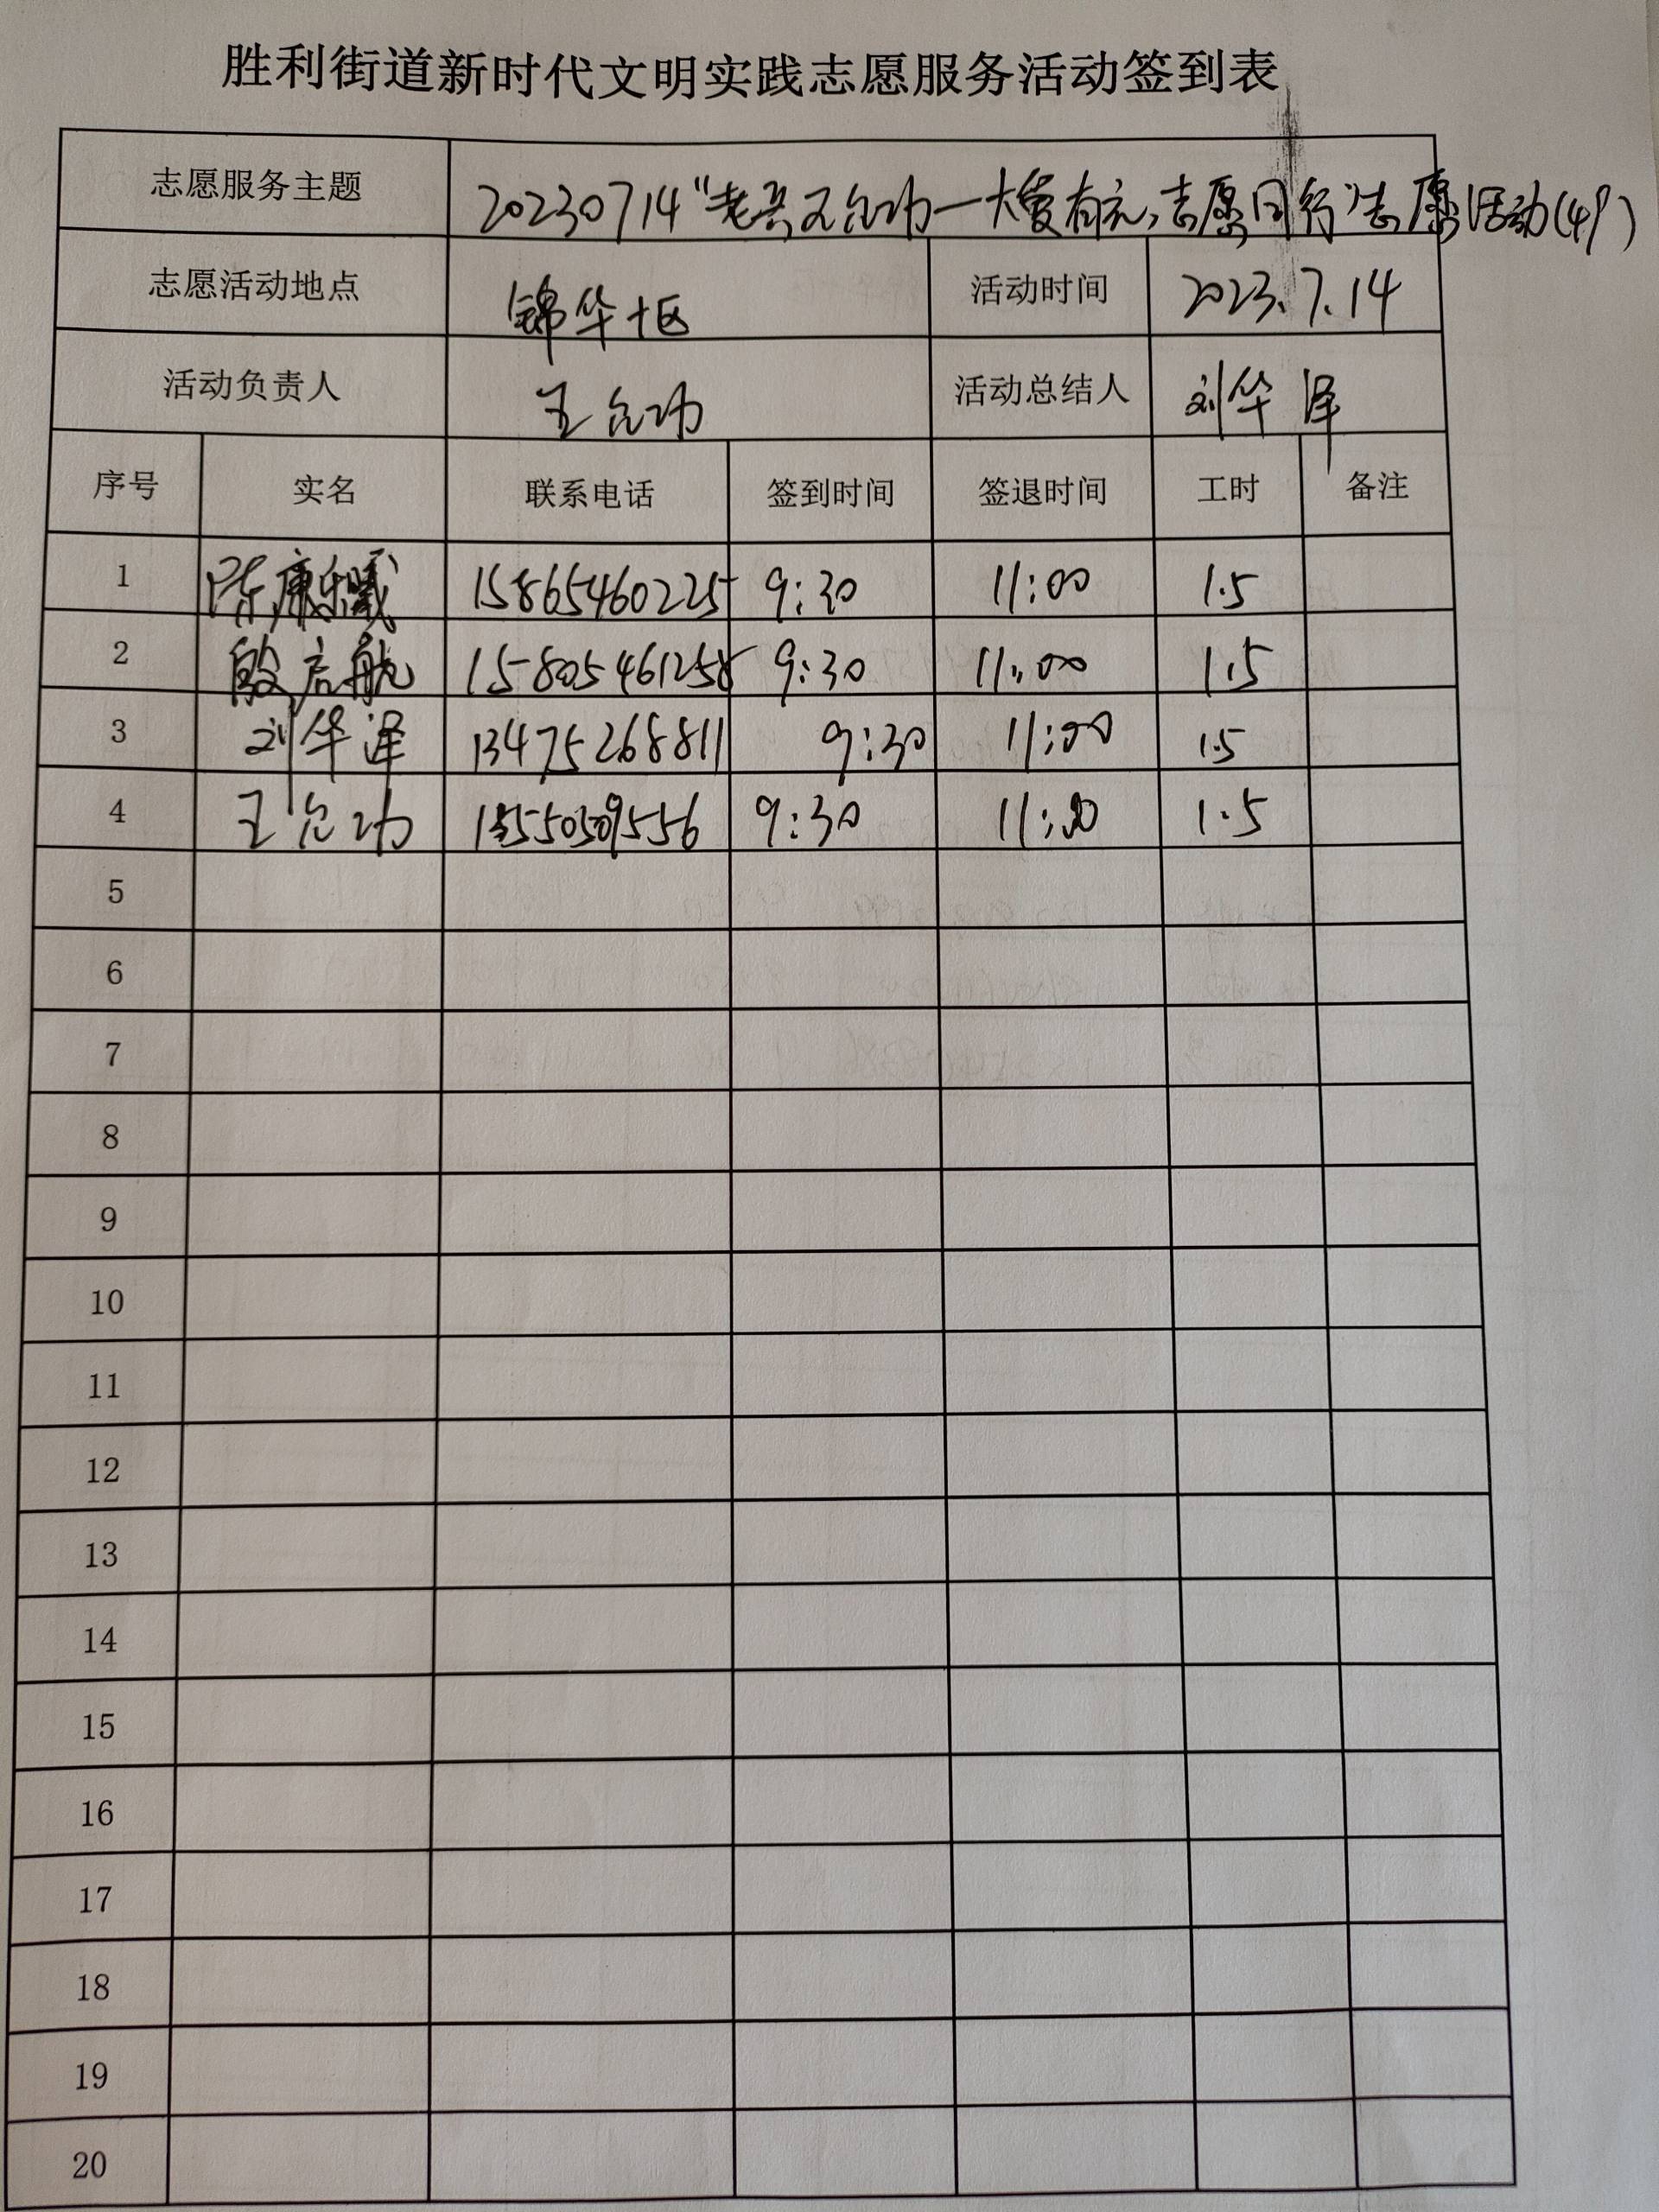 胜利街道新时代文明实践志愿服务活动签到表
志愿服务主题 20230714“老兵王允功—大爱有元,志愿同行”志愿活动(4户)
志愿活动地点 锦华十区 活动时间 2023.7.14
活动负责人 王允功 活动总结人 刘华泽
序号 实名 联系电话 签到时间 签退时间 工时 备注
1 陈康乐曦 15865460225 9:30 11:00 1.5
2 殷启航 15805461258 9:30 11:00 1.5
3 刘华泽 13475268811 9:30 11:00 1.5
4 王允功 9:30 11:00 1.5
5
6
7
8
9
10
11
12
13
14
15
16
17
18
19
20